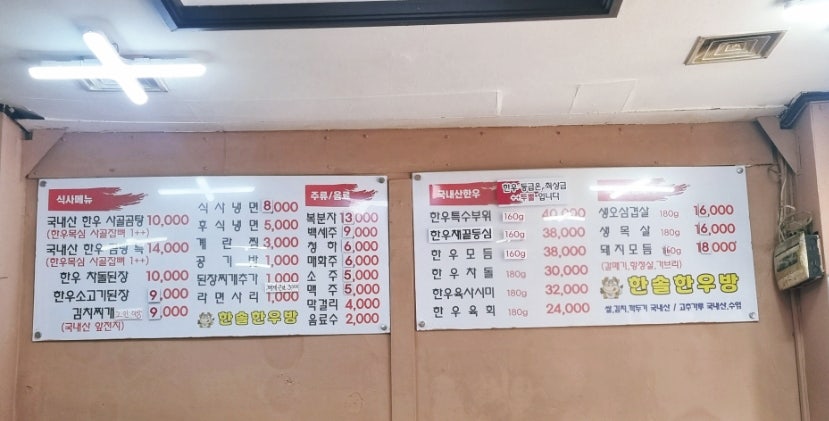 식사메뉴
국내산 한우 사골곰탕 10,000
(한우목심 사골잡뼈 1++)
국내산 한우 14,000
(한우목심 사골잡뼈 1++)
한우 차돌된장 10,000
한우소고기된장 9,000
김치찌개 9,000
(국내산 앞전지)
식사냉면 8,000
후식냉면 5,000
계란찜 3,000
공기밥 1,000
된장찌개추가 1,000
라면사리 1,000
한솔한우방
주류/음료
복분자 13,000
백세주 9,000
청하 6,000
매화주 6,000
소주 5,000
맥주 5,000
막걸리 4,000
음료수 2,000
국내산한우
한우 등급은, 최상급
입니다
한우특수부위 160g 40,000
한우채끝등심 160g 38,000
한우모듬 160g 38,000
한우차돌 180g 30,000
한우육사시미 180g 32,000
한우육회 180g 24,000
생오겹살 180g 16,000
생목살 180g 16,000
돼지모듬 18,000
(갈매기,항정살,가브리)
한솔한우방
쌀,김치,깍두기 국내산 / 고추가루 국내산,수입